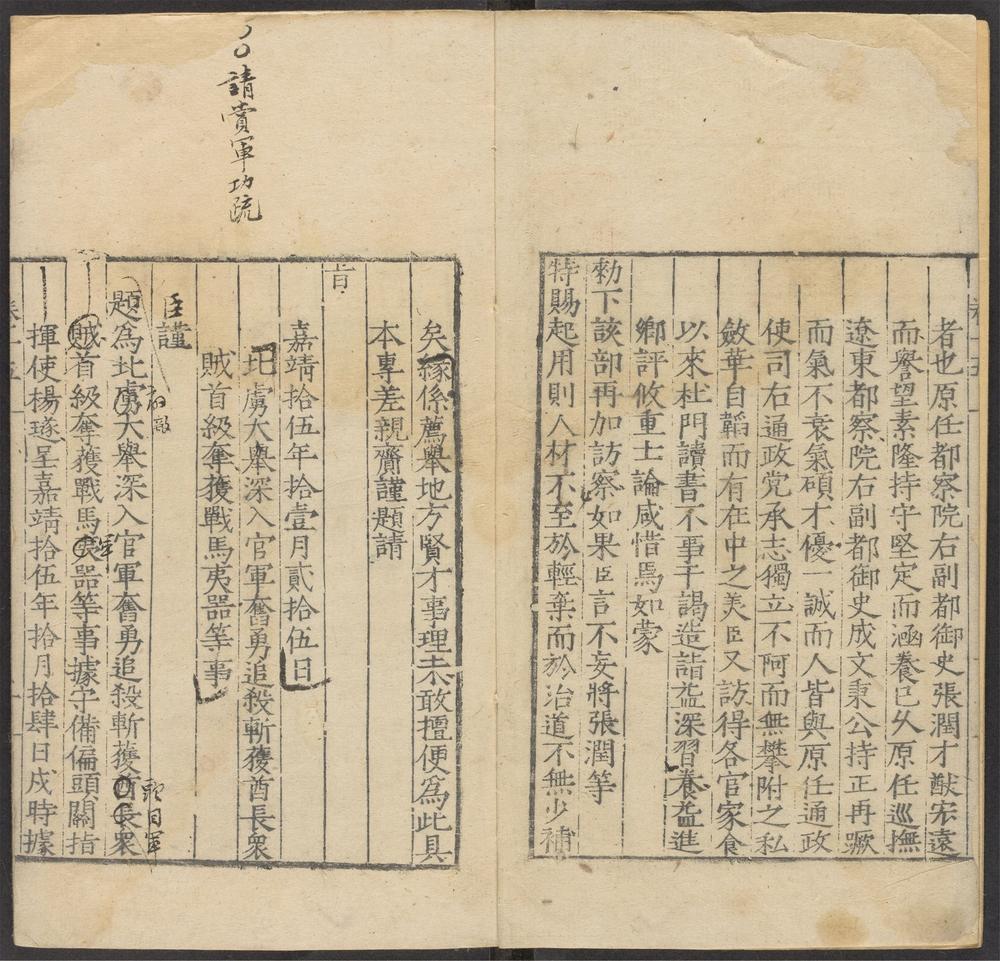 者也原任都察院右副都御史張潤才猷宏遠
而譽望素隆持守堅定而涵養已久原任巡撫
遼東都察院右副都御史成文秉公持正再蹶
而氣不衰氣碩才優一誠而人皆與原任通政
使司右通政党承志獨立不阿而無攀附之私
斂華自韜而有在中之美臣又訪得各官家食
以來杜門讀書不事干謁造詣益深習養益進
鄉評攸重士論咸惜焉如蒙
勑下該部再加訪察如果臣言不妄將張潤等
特賜起用則人材不至於輕棄而於治道不無少補
矣緣係薦舉地方賢才事理未敢擅便為此具
本專差親齎謹題請
旨
嘉靖拾伍年拾壹月貳拾伍日
北虜大舉深入官軍奮勇追殺斬獲酋長衆
賊首級奪獲戰馬夷器等事
請賞軍功疏
臣謹
題為北虜大舉深入官軍奮勇追殺斬獲酋長衆
頭目軍
賊首級奪獲戰馬夷器等事據守備偏頭關指
軍
揮使楊璲呈嘉靖拾伍年拾月拾肆日戌時據